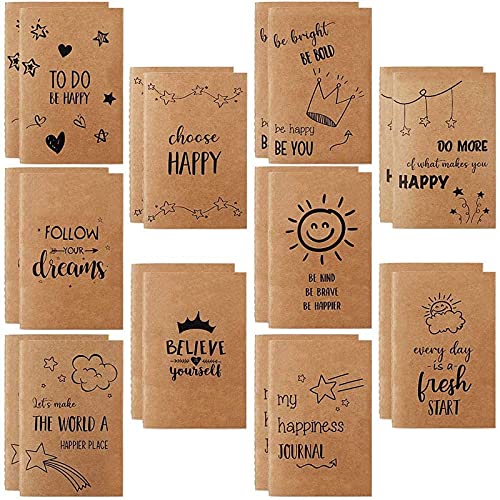 TO DO
BE HAPPY
choose
HAPPY
be bright
BE BOLD
be happy
BE YOU
DO MORE
of what makes you
HAPPY
FOLLOW
YOUR
dreams
BELIEVE
yourself
BE KIND
BE BRAVE
BE HAPPIER
every day
IS A
fresh
START
Let's make
THE WORLD A
HAPPIER PLACE
my
happiness
JOURNAL